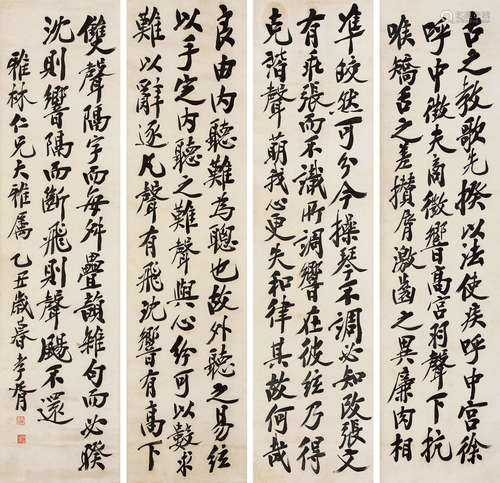 古之教歌先揆以法使疾呼中宮徐
呼中徵夫商徵響高宮羽聲下抗
喉矯舌之差攢脣激齒之異廉肉相
準皎然可分今操琴不調必知改張文
有乖張而不識所調響在彼絃乃得
克諧聲萌我心更失和律其故何哉
良由內聽難為聰也故外聽之易絃
以手定內聽之難聲與心紛可以數求
難以辭逐凡聲有飛沈響有高下
雙聲隔字而每舛疊韻雜句而必睽
沈則響隔而斷飛則聲颺不還
雅林仁兄大雅屬 乙丑歲暮 孝胥